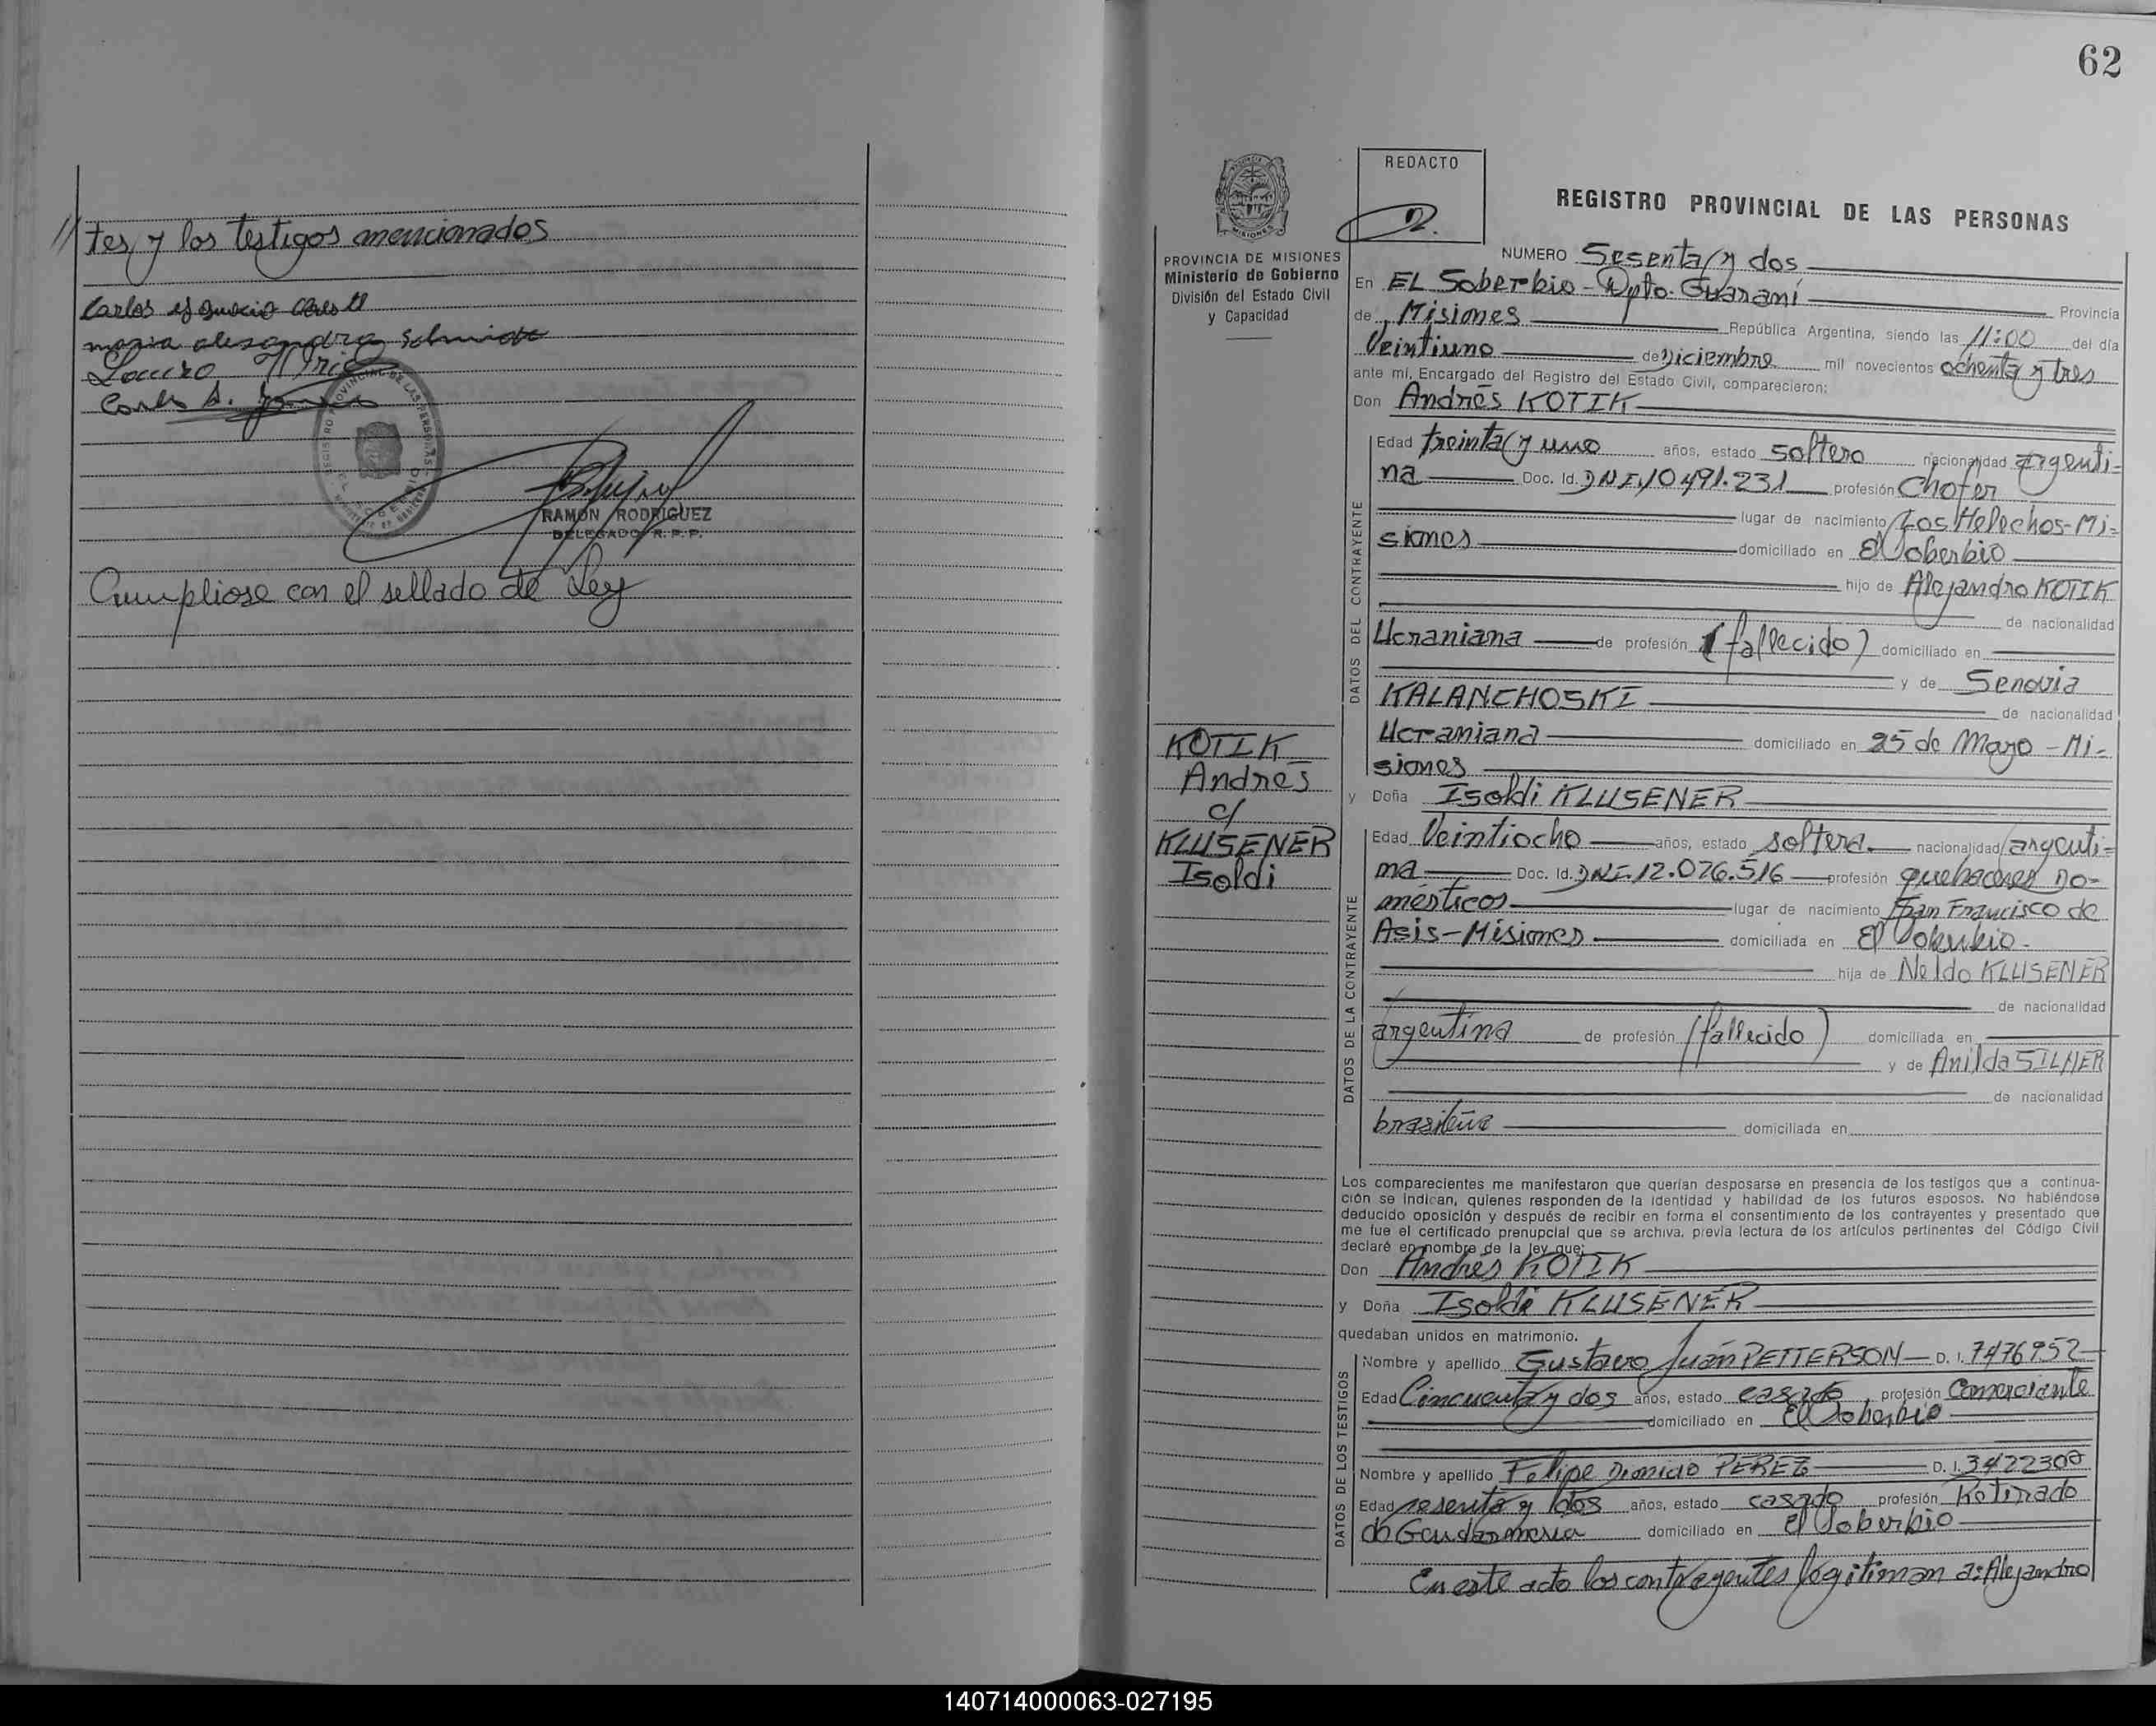 // tes y los testigos mencionados
Carlos
maria alesandra Schmidt
Carlos A.
RAMON RODRIGUEZ
DELEGADO R. P. P.
Cumpliose con el sellado de Ley
62
REDACTO
2.
REGISTRO PROVINCIAL DE LAS PERSONAS
PROVINCIA DE MISIONES
Ministerio de Gobierno
División del Estado Civil
y Capacidad
NUMERO Sesenta y dos
En EL Soberbio - Dpto. Guaraní
Provincia
de Misiones República Argentina, siendo las 11:00 del día
Veintiuno de Diciembre mil novecientos ochenta y tres
ante mí, Encargado del Registro del Estado Civil, comparecieron:
Don Andrés KOTIK
DATOS DEL CONTRAYENTE
Edad treinta y uno años, estado soltero nacionalidad argenti=
na Doc. Id. DNI. 10.491.231 profesión Chofer
lugar de nacimiento Los Helechos-Mi=
siones domiciliado en El Soberbio
hijo de Alejandro KOTIK
de nacionalidad
Ucraniana de profesión (fallecido) domiciliado en
y de Senovia
KALANCHOSKI
de nacionalidad
Ucraniana domiciliado en 25 de Mayo - Mi=
siones
KOTIK
Andrés
c/
KLUSENER
Isoldi
y Doña Isoldi KLUSENER
DATOS DE LA CONTRAYENTE
Edad Veintiocho años, estado soltera nacionalidad argenti=
na Doc. Id. DNI. 12.076.516 profesión quehaceres Do=
mésticos lugar de nacimiento San Francisco de
Asis-Misiones domiciliada en El Soberbio
hija de Neldo KLUSENER
de nacionalidad
argentina de profesión (fallecido) domiciliada en
y de Anilda SILMER
de nacionalidad
brasileña domiciliada en
Los comparecientes me manifestaron que querían desposarse en presencia de los testigos que a continua-
ción se indican, quienes responden de la identidad y habilidad de los futuros esposos. No habiéndose
deducido oposición y después de recibir en forma el consentimiento de los contrayentes y presentado que
me fue el certificado prenupcial que se archiva, previa lectura de los artículos pertinentes del Código Civil
declaré en nombre de la ley que:
Don Andrés KOTIK
y Doña Isoldi KLUSENER
quedaban unidos en matrimonio.
DATOS DE LOS TESTIGOS
Nombre y apellido Gustavo Juan PETTERSON D. I. 7476952
Edad Cincuenta y dos años, estado casado profesión Comerciante
domiciliado en El Soberbio
Nombre y apellido Felipe Dionicio PEREZ D. I. 3422300
Edad sesenta y dos años, estado casado profesión Retirado
de Gendarmeria domiciliado en El Soberbio
En este acto los contrayentes legitiman a: Alejandro
140714000063-027195